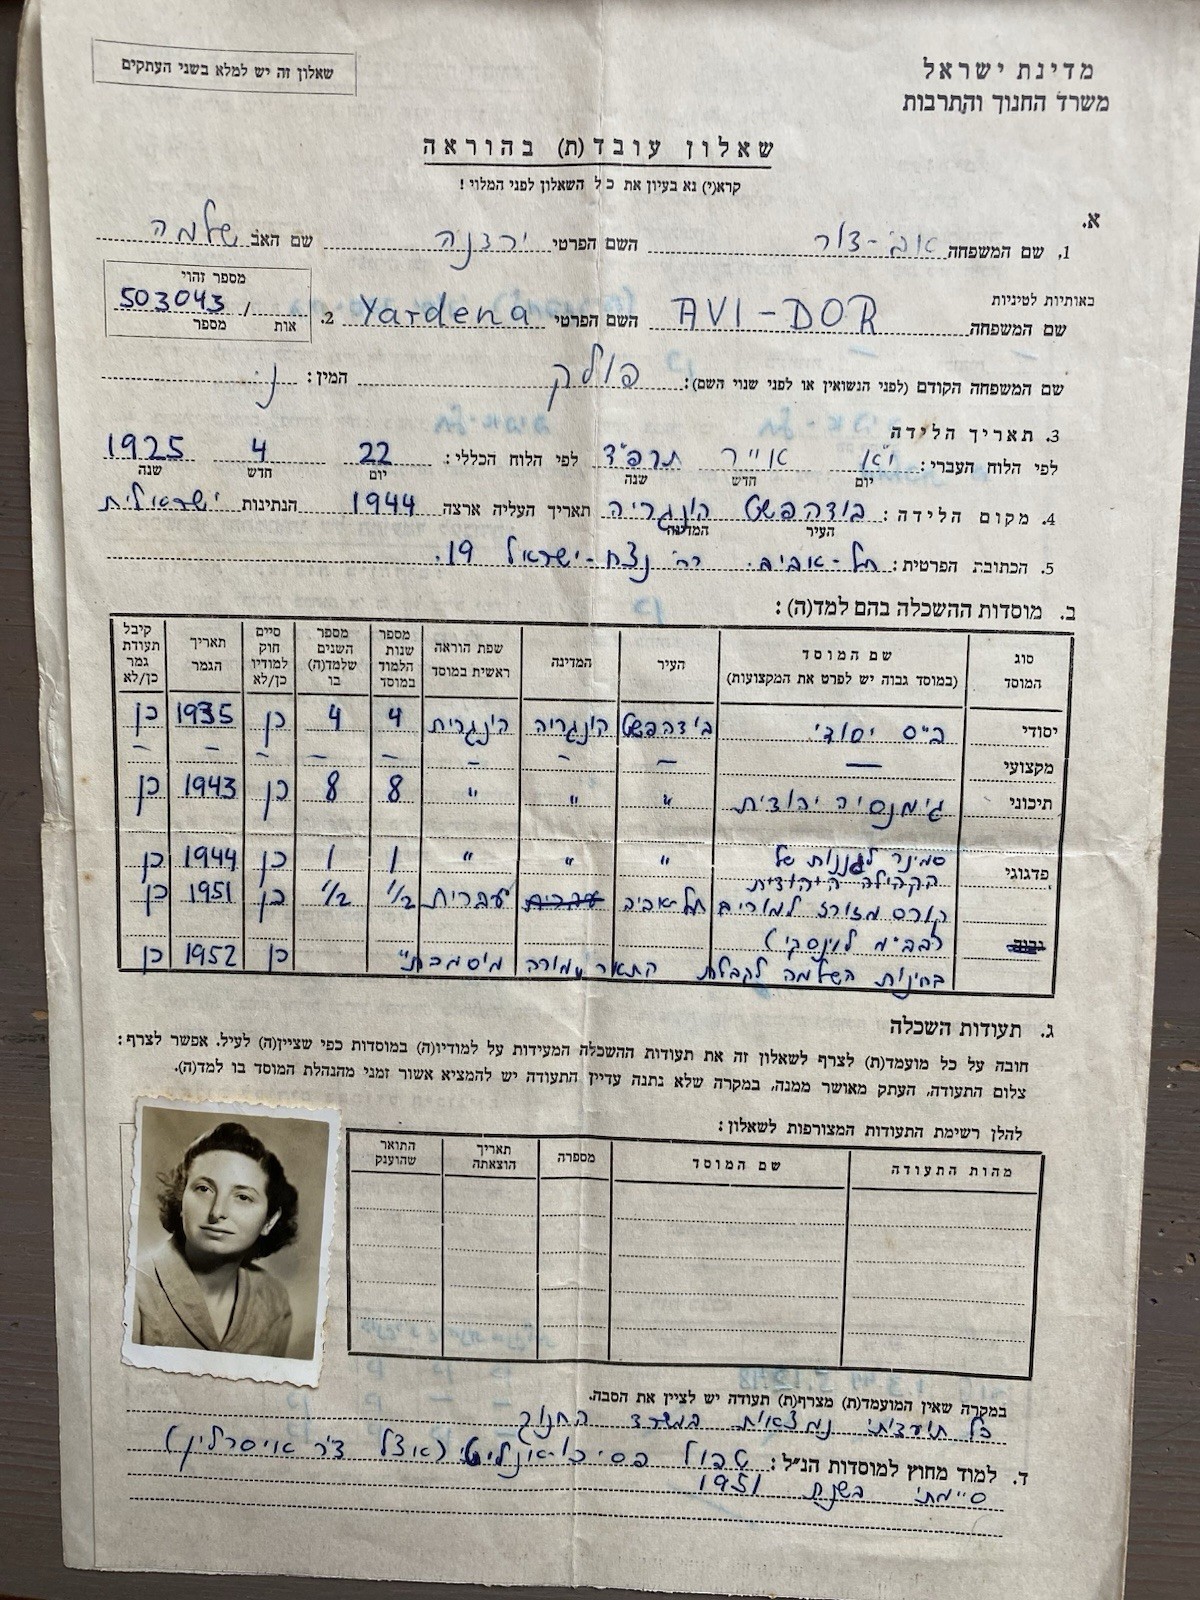 שאלון זה יש למלא בשני העתקים
מדינת ישראל
משרד החנוך והתרבות
שאלון עובד(ת) בהוראה
קרא(י) נא בעיון את כל השאלון לפני המלוי !
א.
1. שם המשפחה אבי-דור השם הפרטי ירדנה שם האב שלמה
באותיות לטיניות
שם המשפחה AVI-DOR השם הפרטי Yardena 2. מספר זהוי / 503043
אות מספר
שם המשפחה הקודם (לפני הנשואין או לפני שנוי השם): פולק המין: נ.
3. תאריך הלידה
לפי הלוח העברי: י"א אייר תרפ"ד לפי הלוח הכללי: 22 4 1925
יום חדש שנה יום חדש שנה
4. מקום הלידה: בודהפשט הונגריה תאריך העליה ארצה 1944 הנתינות ישראלית
העיר המדינה
5. הכתובת הפרטית: תל-אביב. רח' נצח-ישראל 19.
ב. מוסדות ההשכלה בהם למד(ה):
סוג המוסד שם המוסד (במוסד גבוה יש לפרט את המקצועות) העיר המדינה שפת הוראה ראשית במוסד מספר שנות הלמוד במוסד מספר השנים שלמד(ה) בו סיים חוק למודיו כן/לא תאריך הגמר קיבל תעודת גמר כן/לא
יסודי ב"ס יסודי בודהפשט הונגריה הונגרית 4 4 כן 1935 כן
מקצועי — — — — — — — — —
תיכוני גימנסיה יהודית " " " 8 8 כן 1943 כן
פדגוגי סמינר לגננות של " " " 1 1 כן 1944 כן
הקהילה היהודית
קורס מזורז למורים תל-אביב עברית עברית 1/2 1/2 כן 1951 כן
גבוה (בב"מ לוינסקי)
בחינות השלמה לקבלת התאר "מורה מוסמכת" כן 1952 כן
ג. תעודות השכלה
חובה על כל מועמד(ת) לצרף לשאלון זה את תעודות ההשכלה המעידות על למודיו(ה) במוסדות כפי שציין(ה) לעיל. אפשר לצרף:
צלום התעודה, העתק מאושר ממנה, במקרה שלא נתנה עדיין התעודה יש להמציא אשור זמני מהנהלת המוסד בו למד(ה).
להלן רשימת התעודות המצורפות לשאלון:
מהות התעודה שם המוסד מספרה תאריך הוצאתה התואר שהוענק
במקרה שאין המועמד(ת) מצרף(ת) תעודה יש לציין את הסבה.
כל תעודותי נמצאות במשרד החנוך
ד. למוד מחוץ למוסדות הנ"ל: טפול פסיכו-אנליטי (אצל ד"ר אויסרלין)
סיימתי בשנת 1951